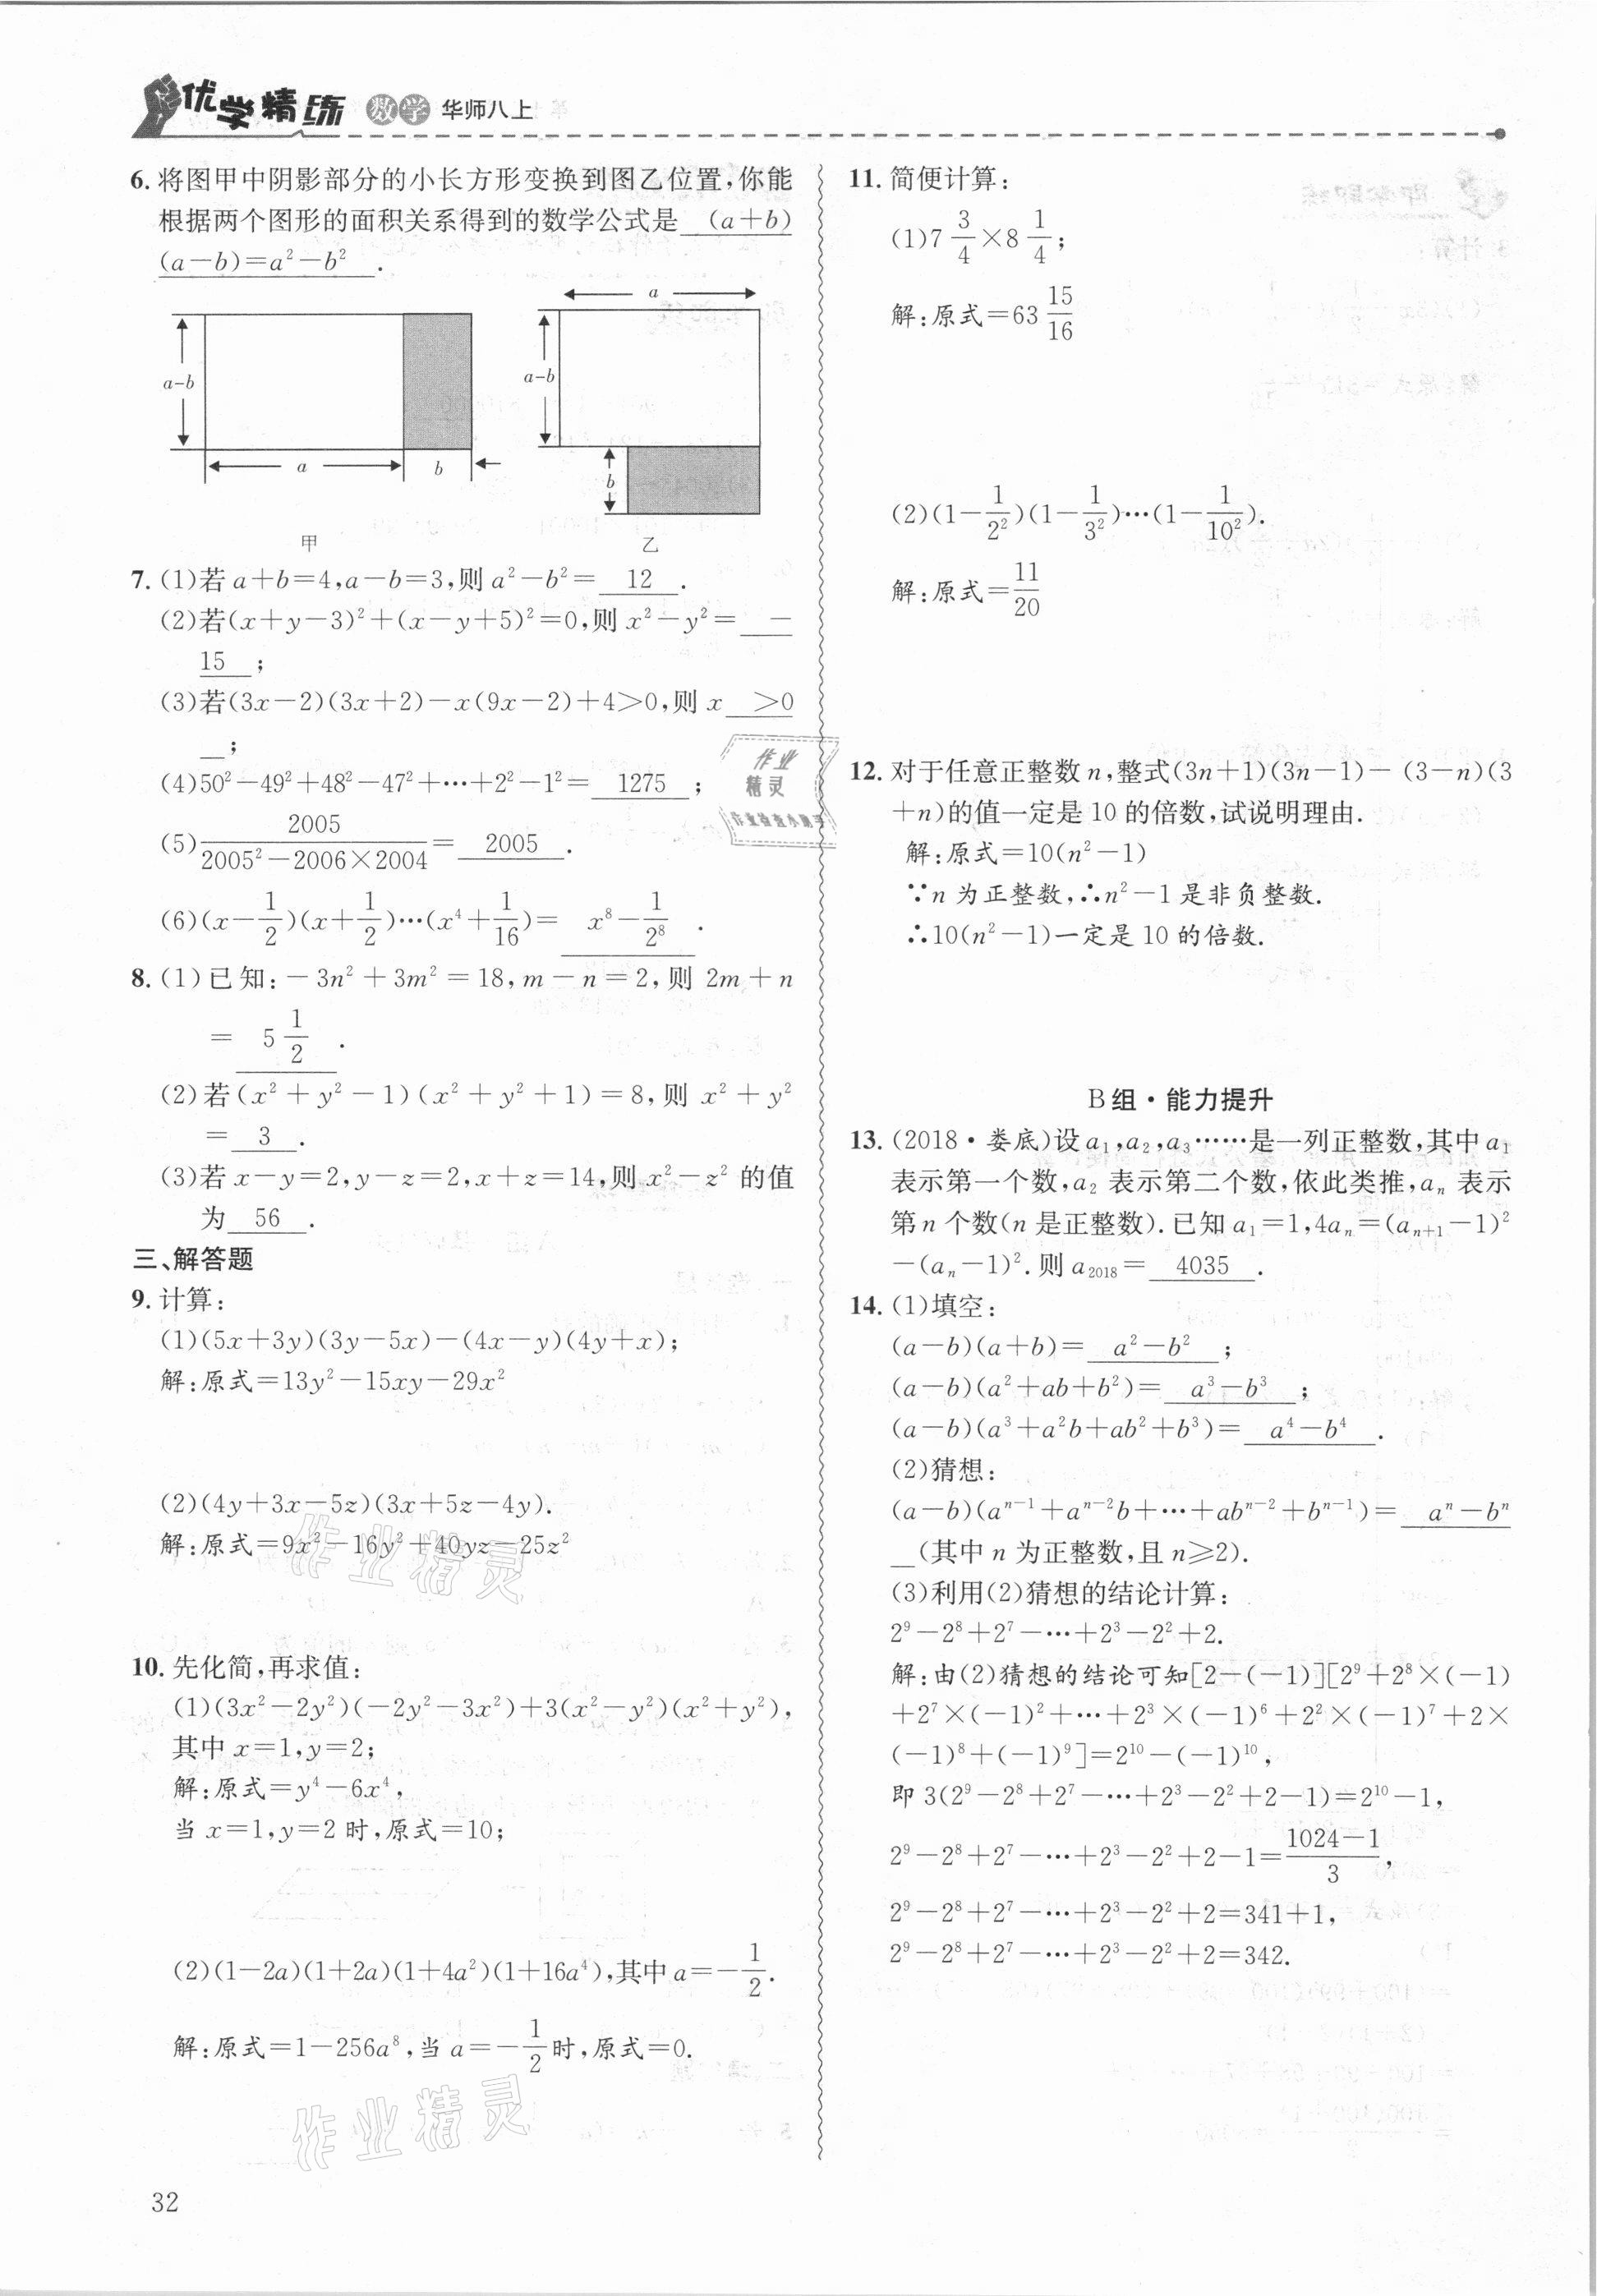 优学精练 数学 华师八上
6. 将图甲中阴影部分的小长方形变换到图乙位置,你能
根据两个图形的面积关系得到的数学公式是 (a+b)
(a-b)=a²-b² .
a
a-b
a-b
a
b
b
甲
乙
7. (1)若 a+b=4,a-b=3,则 a²-b²= 12 .
(2)若(x+y-3)²+(x-y+5)²=0,则 x²-y²= -
15 ;
(3)若(3x-2)(3x+2)-x(9x-2)+4>0,则 x >0
;
(4)50²-49²+48²-47²+…+2²-1²= 1275 ;
(5) 2005/(2005²-2006×2004) = 2005 .
(6)(x-1/2)(x+1/2)…(x⁴+1/16)= x⁸-1/2⁸ .
8. (1)已知:-3n²+3m²=18,m-n=2,则 2m+n
= 5 1/2 .
(2)若(x²+y²-1)(x²+y²+1)=8,则 x²+y²
= 3 .
(3)若 x-y=2,y-z=2,x+z=14,则 x²-z² 的值
为 56 .
三、解答题
9. 计算:
(1)(5x+3y)(3y-5x)-(4x-y)(4y+x);
解:原式=13y²-15xy-29x²
(2)(4y+3x-5z)(3x+5z-4y).
解:原式=9x²-16y²+40yz-25z²
10. 先化简,再求值:
(1)(3x²-2y²)(-2y²-3x²)+3(x²-y²)(x²+y²),
其中 x=1,y=2;
解:原式=y⁴-6x⁴,
当 x=1,y=2 时,原式=10;
(2)(1-2a)(1+2a)(1+4a²)(1+16a⁴),其中 a=-1/2.
解:原式=1-256a⁸,当 a=-1/2时,原式=0.
32
11. 简便计算:
(1)7 3/4×8 1/4;
解:原式=63 15/16
(2)(1-1/2²)(1-1/3²)…(1-1/10²).
解:原式=11/20
作业
精灵
作业检查小助手
12. 对于任意正整数 n,整式(3n+1)(3n-1)-(3-n)(3
+n)的值一定是 10 的倍数,试说明理由.
解:原式=10(n²-1)
∵n 为正整数,∴n²-1 是非负整数.
∴10(n²-1)一定是 10 的倍数.
B组·能力提升
13. (2018·娄底)设 a₁,a₂,a₃……是一列正整数,其中 a₁
表示第一个数,a₂ 表示第二个数,依此类推,aₙ 表示
第 n 个数(n 是正整数).已知 a₁=1,4aₙ=(aₙ₊₁-1)²
-(aₙ-1)².则 a₂₀₁₈= 4035 .
14. (1)填空:
(a-b)(a+b)= a²-b² ;
(a-b)(a²+ab+b²)= a³-b³ ;
(a-b)(a³+a²b+ab²+b³)= a⁴-b⁴ .
(2)猜想:
(a-b)(aⁿ⁻¹+aⁿ⁻²b+…+abⁿ⁻²+bⁿ⁻¹)= aⁿ-bⁿ
(其中 n 为正整数,且 n≥2).
(3)利用(2)猜想的结论计算:
2⁹-2⁸+2⁷-…+2³-2²+2.
解:由(2)猜想的结论可知[2-(-1)][2⁹+2⁸×(-1)
+2⁷×(-1)²+…+2³×(-1)⁶+2²×(-1)⁷+2×
(-1)⁸+(-1)⁹]=2¹⁰-(-1)¹⁰,
即 3(2⁹-2⁸+2⁷-…+2³-2²+2-1)=2¹⁰-1,
2⁹-2⁸+2⁷-…+2³-2²+2-1=(1024-1)/3,
2⁹-2⁸+2⁷-…+2³-2²+2=341+1,
2⁹-2⁸+2⁷-…+2³-2²+2=342.
作业精灵
作业精灵